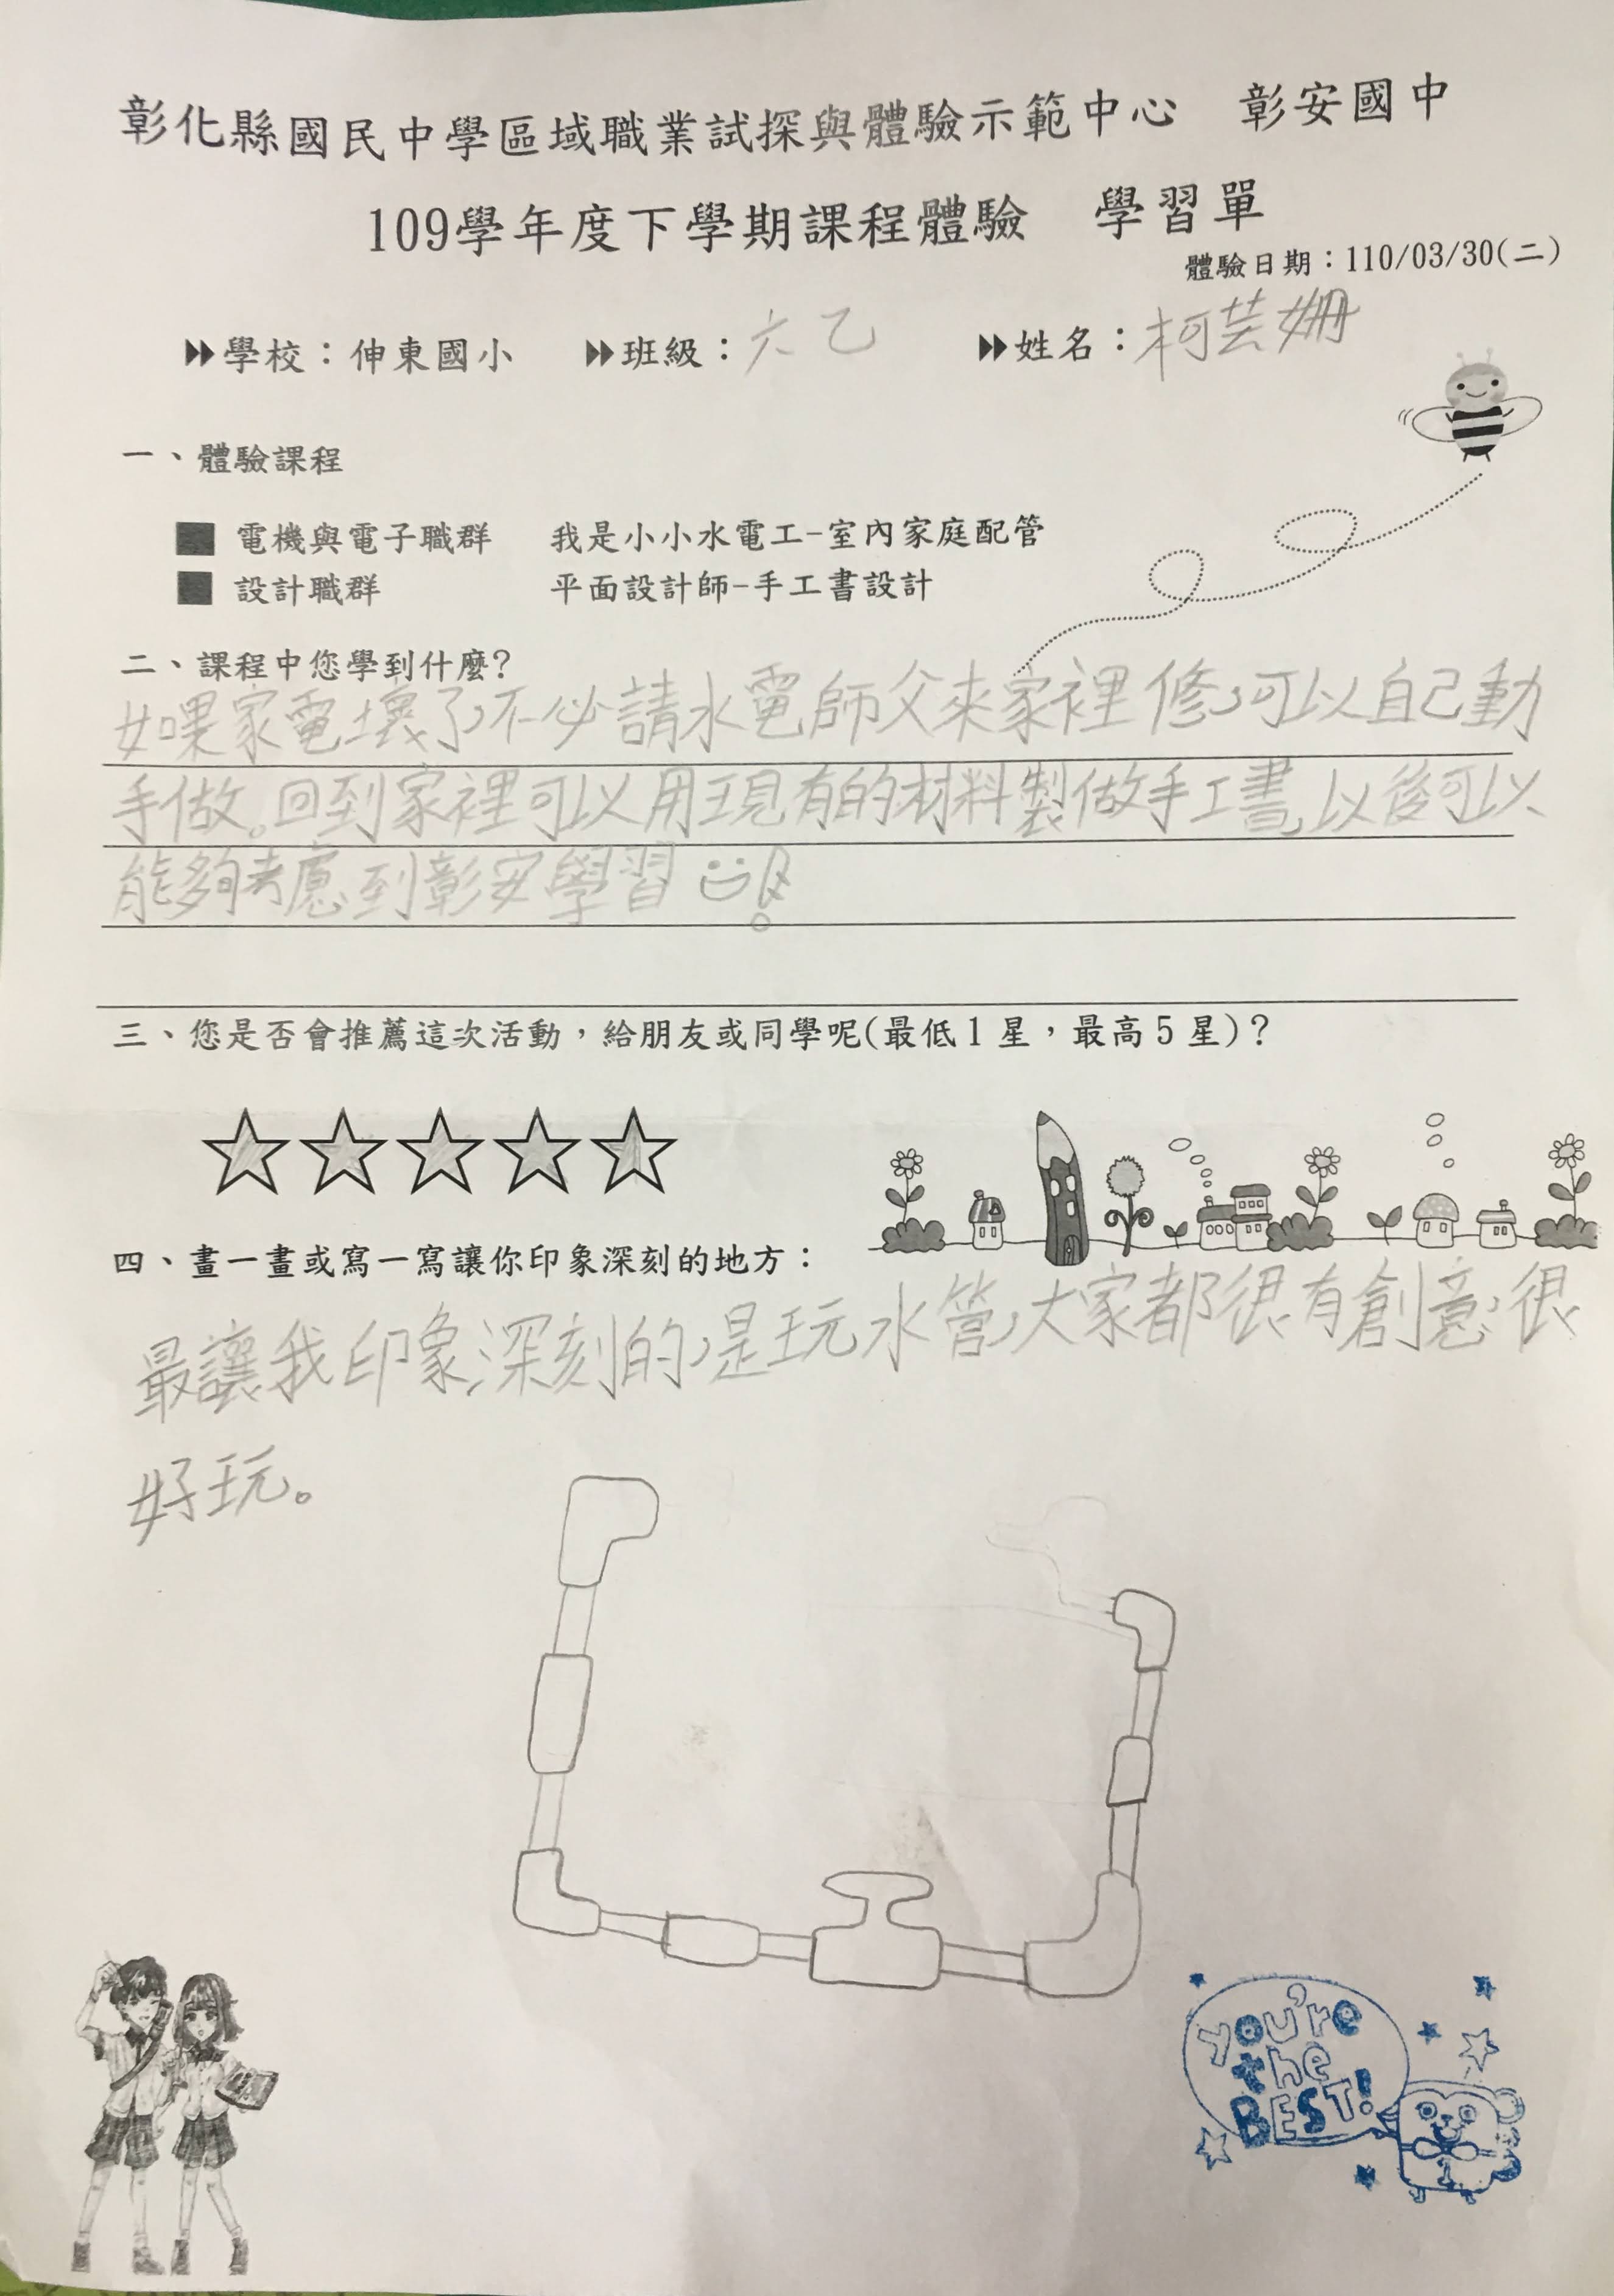 彰化縣國民中學區域職業試探與體驗示範中心　彰安國中
109學年度下學期課程體驗　學習單
體驗日期：110/03/30(二)
學校：伸東國小　班級：六乙　姓名：柯芸姍
一、體驗課程
■ 電機與電子職群　我是小小水電工-室內家庭配管
■ 設計職群　平面設計師-手工書設計
二、課程中您學到什麼?
如果家電壞了,不必請水電師父來家裡修,可以自己動
手做。回到家裡可以用現有的材料製做手工書,以後可以
能夠考慮到彰安學習
三、您是否會推薦這次活動，給朋友或同學呢(最低1星，最高5星)?
四、畫一畫或寫一寫讓你印象深刻的地方：
最讓我印象深刻的,是玩水管,大家都很有創意,很
好玩。
you're
the
BEST!